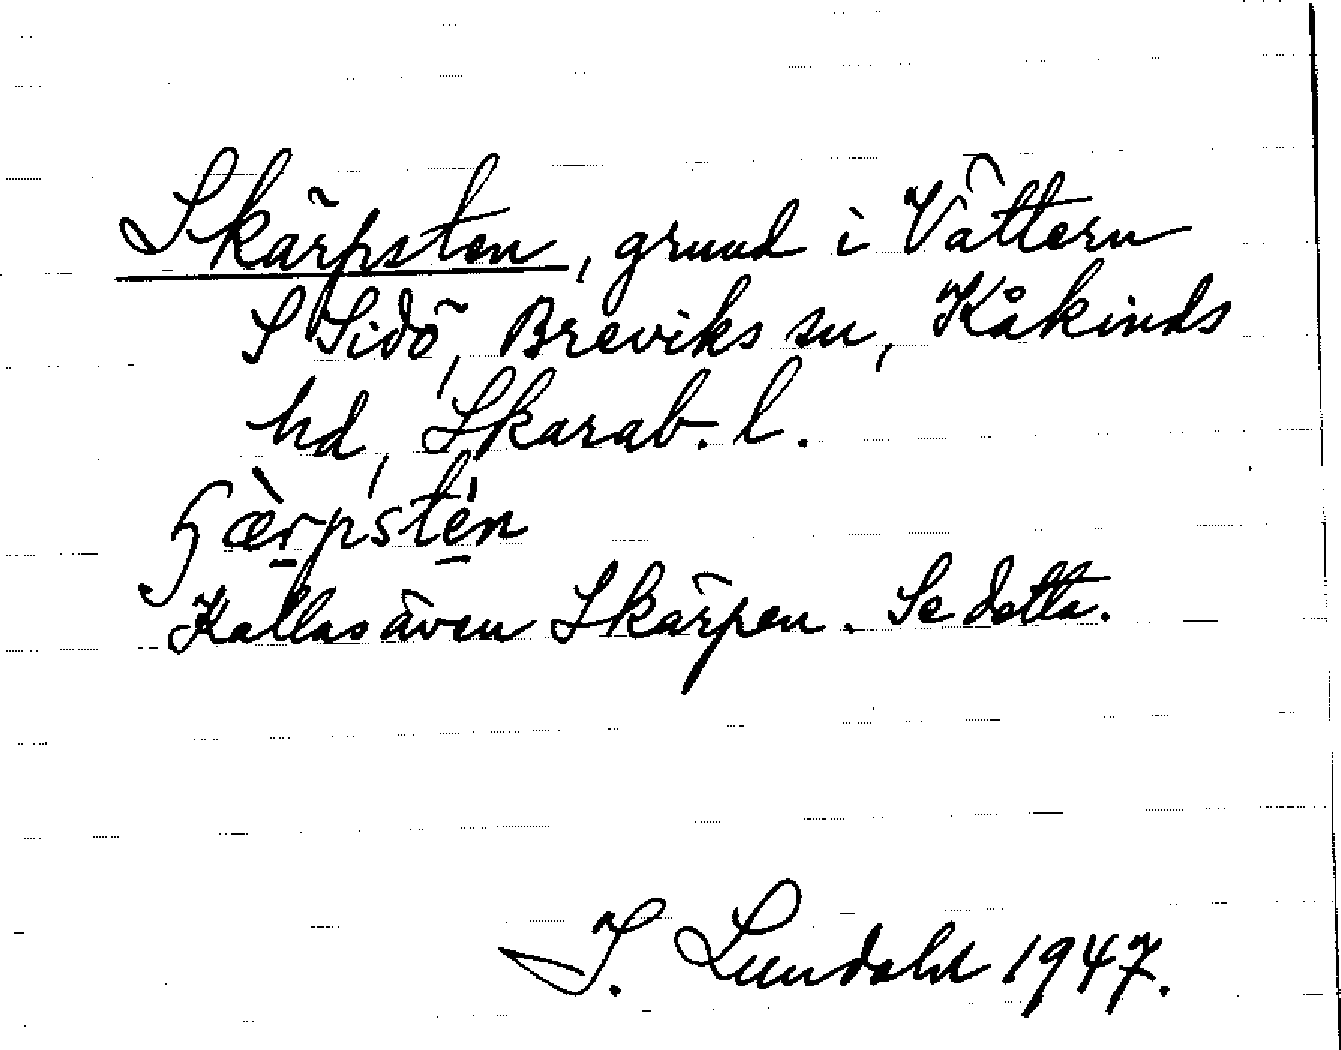 Skärpsten, grund i Vättern
S Sidö, Breviks sn, Kåkinds
hd, Skarab. l.
ʃæ̀rpstén
Kallas även Skärpen. Se detta.
I. Lundahl 1947.